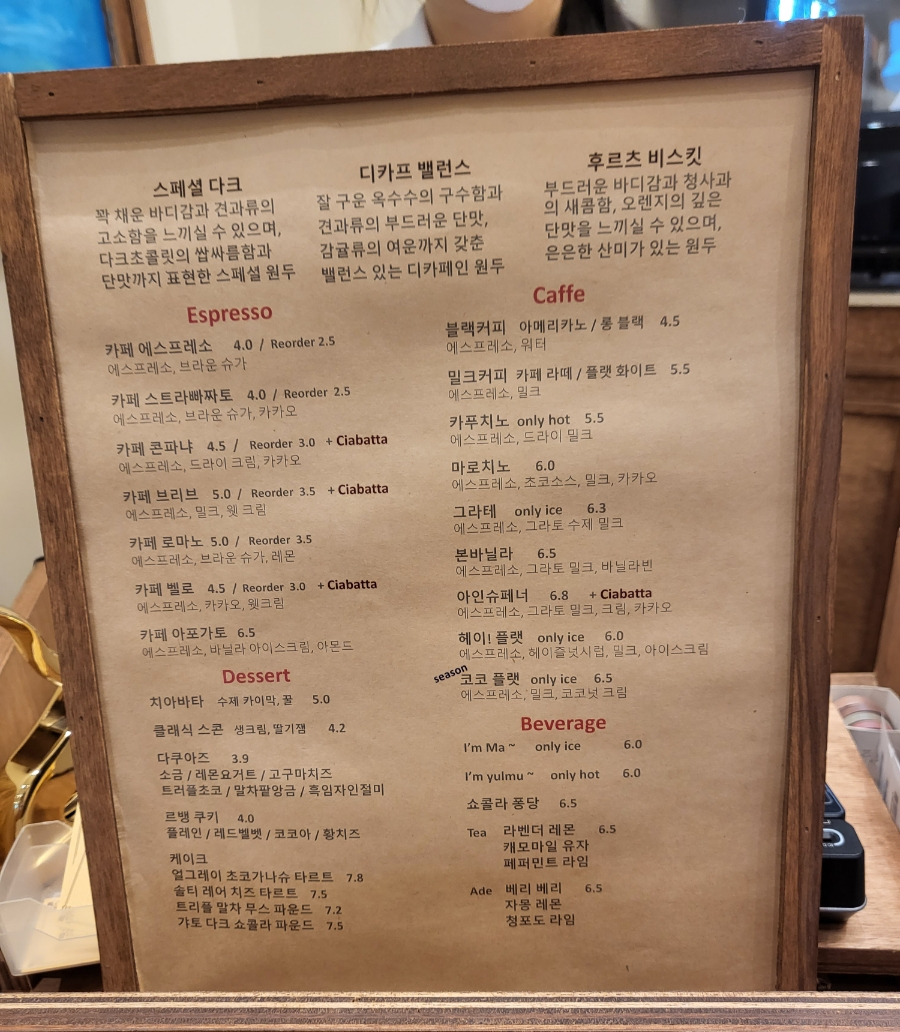 스페셜 다크
꽉 채운 바디감과 견과류의
고소함을 느끼실 수 있으며,
다크초콜릿의 쌉싸름함과
단맛까지 표현한 스페셜 원두
디카프 밸런스
잘 구운 옥수수의 구수함과
견과류의 부드러운 단맛,
감귤류의 여운까지 갖춘
밸런스 있는 디카페인 원두
후르츠 비스킷
부드러운 바디감과 청사과
의 새콤함, 오렌지의 깊은
단맛을 느끼실 수 있으며,
은은한 산미가 있는 원두
Espresso
카페 에스프레소 4.0 / Reorder 2.5
에스프레소, 브라운 슈가
카페 스트라빠짜토 4.0 / Reorder 2.5
에스프레소, 브라운 슈가, 카카오
카페 콘파냐 4.5 / Reorder 3.0 + Ciabatta
에스프레소, 드라이 크림, 카카오
카페 브리브 5.0 / Reorder 3.5 + Ciabatta
에스프레소, 밀크, 웻 크림
카페 로마노 5.0 / Reorder 3.5
에스프레소, 브라운 슈가, 레몬
카페 벨로 4.5 / Reorder 3.0 + Ciabatta
에스프레소, 카카오, 웻크림
카페 아포가토 6.5
에스프레소, 바닐라 아이스크림, 아몬드
Dessert
치아바타 수제 카이막, 꿀 5.0
클래식 스콘 생크림, 딸기잼 4.2
다쿠아즈 3.9
소금 / 레몬요거트 / 고구마치즈
트러플초코 / 말차팥앙금 / 흑임자인절미
르뱅 쿠키 4.0
플레인 / 레드벨벳 / 코코아 / 황치즈
케이크
얼그레이 초코가나슈 타르트 7.8
솔티 레어 치즈 타르트 7.5
트리플 말차 무스 파운드 7.2
갸토 다크 쇼콜라 파운드 7.5
Caffe
블랙커피 아메리카노 / 롱 블랙 4.5
에스프레소, 워터
밀크커피 카페 라떼 / 플랫 화이트 5.5
에스프레소, 밀크
카푸치노 only hot 5.5
에스프레소, 드라이 밀크
마로치노 6.0
에스프레소, 초코소스, 밀크, 카카오
그라테 only ice 6.3
에스프레소, 그라토 수제 밀크
본바닐라 6.5
에스프레소, 그라토 밀크, 바닐라빈
아인슈페너 6.8 + Ciabatta
에스프레소, 그라토 밀크, 크림, 카카오
헤이! 플랫 only ice 6.0
에스프레소, 헤이즐넛시럽, 밀크, 아이스크림
season
코코 플랫 only ice 6.5
에스프레소, 밀크, 코코넛 크림
Beverage
I'm Ma ~ only ice 6.0
I'm yulmu ~ only hot 6.0
쇼콜라 퐁당 6.5
Tea 라벤더 레몬 6.5
캐모마일 유자
페퍼민트 라임
Ade 베리 베리 6.5
자몽 레몬
청포도 라임